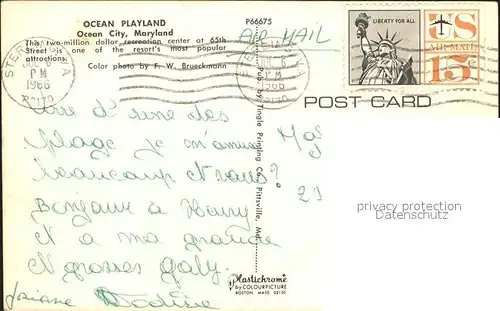 OCEAN PLAYLAND
Ocean City, Maryland
P66675
This two-million dollar recreation center at 65th
Street is one of the resort's most popular
attractions.
Color photo by F. W. Brueckmann
AIR MAIL
LIBERTY FOR ALL
US
AIR MAIL
15¢
PM
1966
PM
1966
POST CARD
Pub. by Tingle Printing Co., Pittsville, Md.
Vue d'une des
plage je m'amuse
beaucoup et vous?
Bonjour à
et à ma grande
et grosses
Josiane
privacy protection
Datenschutz
Plastichrome
by COLOURPICTURE
BOSTON MASS 02130